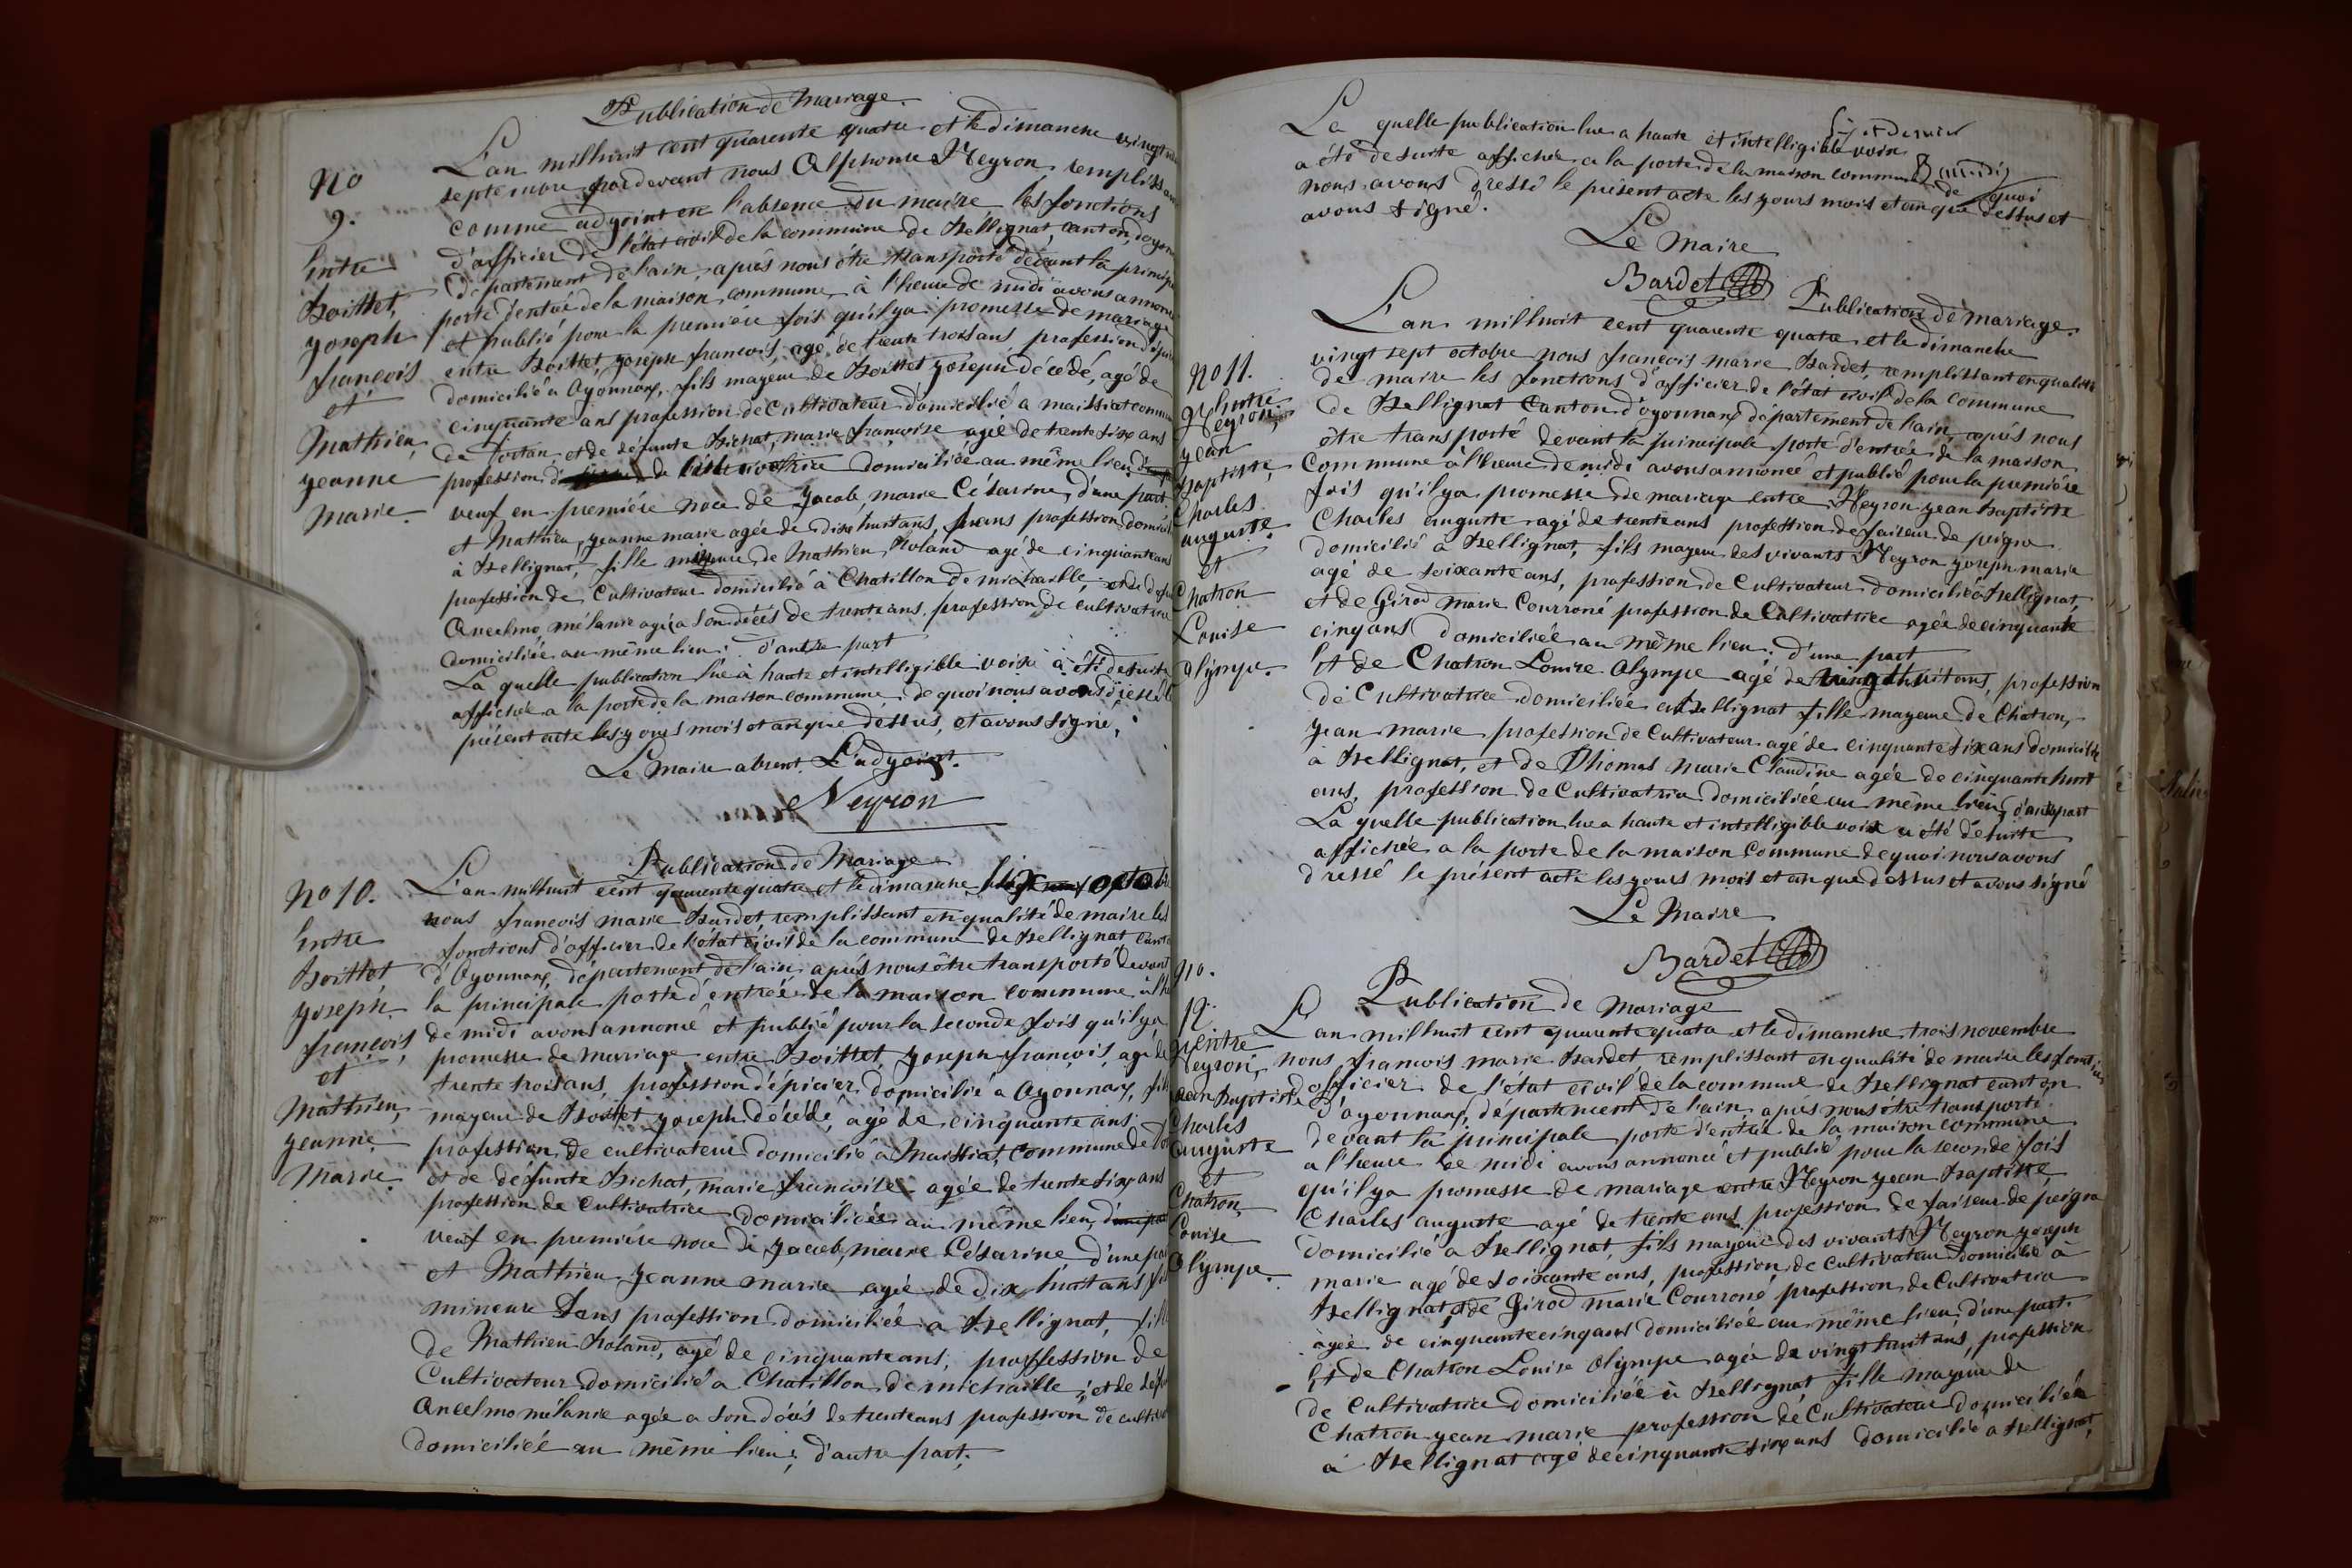 Publication de Mariage.
No
9.
Entre
Boittet,
Joseph
françois
et
Mathieu,
Jeanne
Marie.
L'an milhuit cent quarente quatre et le dimanche vingt
septembre pardevant nous Alphonse Neyron remplissan
comme adjoint en l'absence du maire les fonctions
d'officier de l'état civil de la commune de Bellignat, canton, d'oyon
département de l'ain, après nous être transporté devant la princip
porte d'entrée de la maison commune, à l'heure de midi avons annon
et publié pour la première fois qu'il ya promesse de mariage
entre Boittet, joseph françois, agé de trente trois ans profession d'épi
domicilié a Oyonnax, fils mageur de Boittet Joseph décédé, agé de
cinquante ans profession de Cultivateur domicilié a maissiat commu
de Dortan et de défunte Bichat, marie françoise agée de trente six ans
profession de Cultivatrice domiciliée au même lieu
veuf en première noce de Jacob, marie Césarine, d'une part
et Mathieu, jeanne marie agée de dix huit ans, sans profession domici
à Bellignat, fille mineure de Mathieu, Roland agé de cinquante ans
profession de Cultivateur domicilié à Chatillon de michaille, et de def
Ancelmo, mélanie agée a son décès de trente ans, profession de cultivatrice
domiciliée au même lieu; d'autre part
La quelle publication lue à haute et intelligible voix a été de suite
affichée a la porte de la maison commune, de quoi nous avons dressé le
présent acte les jours mois et an que dessus, et avons signé,
Le Maire absent. L'adjoint.
Neyron
Publication de Mariage
No 10.
Entre
Boittet
Joseph
françois,
et
Mathieu,
Jeanne
Marie.
L'an milhuit cent quarente quatre et le dimanche six octobre
nous françois marie Bardet, remplissant en qualité de maire les
fonctions d'officier de l'état civil de la commune de Bellignat, canto
d'Oyonnax, département de l'ain, après nous être transporté devant
la principale porte d'entrée de la maison commune, à l'he
de midi avons annoncé et publié pour la seconde fois qu'il ya
promesse de mariage entre Boittet, joseph françois, agé de
trente trois ans, profession d'épicier, domicilié a Oyonnax, fils
mageur de Boittet joseph décédé, agé de cinquante ans
profession de cultivateur domicilié à Maissiat, commune de Dor
et de défunte Bichat, marie françoise agée de trente six ans
profession de Cultivatrice domiciliée au même lieu, d'une part
veuf en première noce de Jacob, marie Césarine, d'une pa
et Mathieu Jeanne marie agée de dix huit ans fil
mineure Sans profession domiciliée a Bellignat, fille
de Mathieu Roland, agé de cinquante ans, proffession de
Cultivateur domicilié a Chatillon de michaille, et de défu
Ancelmo mélanie agée a son décès de trente ans profession de culti
domiciliée au même lieu; d'autre part.
Six et dernier
La quelle publication lue a haute et intelligible voix
a été de suite affichée a la porte de la maison commune, de quoi
nous avons dressé le présent acte les jours mois et an que dessus et
avons signé.
Le Maire
Bardet
Publication de mariage.
No 11.
Entre
Neyron,
Jean
baptiste,
Charles
auguste.
et
Chatron
Louise
olympe.
L'an milhuit cent quarente quatre et le dimanche
vingt sept octobre nous françois marie Bardet, remplissant en qualité
de maire les fonctions d'officier de l'état civil de la commune
de Bellignat Canton d'oyonnax département de l'ain, après nous
être transporté devant la principale porte d'entrée de la maison
Commune à l'heure de midi avons annoncé et publié pour la première
fois qu'il ya promesse de mariage entre Neyron jean baptiste
Charles auguste agé de trente ans profession de faiseur de peigne
domicilié à Bellignat, fils mageur des vivants Neyron joseph marie
agé de soixante ans, profession de Cultivateur domicilié à Bellignat,
et de Girod Marie Courroné profession de Cultivatrice agée de cinquante
cinq ans domiciliée au même lieu; d'une part
Et de Chatron Louise Olympe agé de vingt huit ans, profession
de Cultivatrice domiciliée a Bellignat fille mageure de Chatron,
jean marie profession de Cultivateur agé de cinquante six ans domicilié
à Bellignat, et de Thomas Marie Claudine agée de cinquante huit
ans, profession de Cultivatrice domiciliée au même lieu; d'autre part
La quelle publication lue a haute et intelligible voix a été de suite
affichée a la porte de la maison Commune de quoi nous avons
dressé le présent acte les jours mois et an que dessus et avons signé
Le Maire
Bardet
Publication de Mariage
No.
12.
Entre
Neyron,
Jean Baptiste
Charles
auguste
et
Chatron,
Louise
Olympe.
L'an milhuit cent quarente quatre et le dimanche trois novembre
nous françois marie Bardet remplissant en qualité de maire les fonctions
d'officier de l'état civil de la commune de Bellignat canton
d'oyonnax, département de l'ain, après nous être transporté
devant la principale porte d'entrée de la maison commune
a l'heure de midi avons annoncé et publié pour la seconde fois
qu'il ya promesse de mariage entre Neyron jean Baptiste,
Charles auguste agé de trente ans profession de faiseur de peigne
domicilié a Bellignat, fils mageur des vivants Neyron joseph
marie agé de soixante ans, profession de cultivateur domicilié à
Bellignat, et de Girod marie Courroné profession de Cultivatrice
agée de cinquante cinq ans domiciliée au même lieu, d'une part.
Et de Chatron Louise Olympe agée de vingt huit ans, profession
de Cultivatrice domiciliée à Bellignat fille mageure de
Chatron jean marie profession de Cultivateur domiciliée
à Bellignat agé de cinquante six ans domicilié a Bellignat,